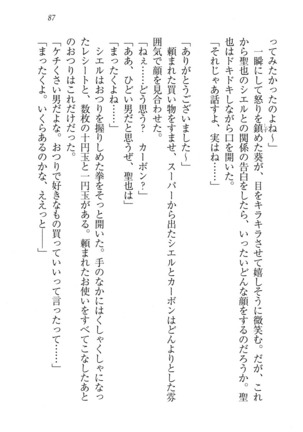 87
ってみたかったのよね～」
　一瞬にして怒りを鎮めた葵が、目をキラキラさせて嬉しそうに微笑む。だが、これ
から聖也のシエルとの関係の告白をしたら、いったいどんな顔をするのだろうか。聖
也はドキドキしながら口を開いた。
「それじゃあ話すよ、実はね……」
「ありがとうございました～」
　頼まれた買い物をすませ、スーパーから出たシエルとカーボンはどんよりとした雰
囲気で顔を見合わせた。
「ねぇ……どう思う？　カーボン？」
「ああ、ひどい男だと思うぜ、聖也は」
「まったくよね……」
　シエルはおつりを握りしめた拳をそっと開いた。手のなかにはくしゃくしゃになっ
たレシートと、数枚の十円玉と一円玉がある。頼まれたお使いをすべてこなしたあと
のおつりはこれだけだった。
「ケチくさい男だよな。おつりで好きなもの買っていいって言ったって……」
「まったくよ。いくらあるのかな、ええっと――」